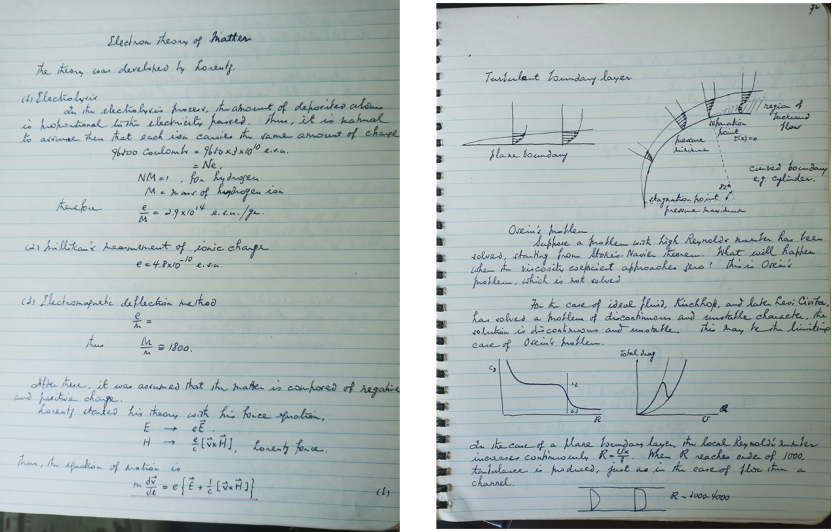 Electron theory of Matter
The theory was developed by Lorentz.
(1) Electrolysis
In the electrolysis process, the amount of deposited atoms
is proportional to the electricity passed. Thus, it is natural
to assume then that each ion carries the same amount of charge
96500 Coulombs = 9650 x 3 x 10^10 e.s.u.
= Ne,
NM = 1, for hydrogen
M = mass of hydrogen ion
therefore e/M = 2.9 x 10^14 e.s.u./gr.
(2) Millikan's measurement of ionic charge
e = 4.8 x 10^-10 e.s.u.
(3) Electromagnetic deflection method
e/m =
thus M/m ≅ 1800.
After these, it was assumed that the matter is composed of negative
and positive charge.
Lorentz started his theory with his force equation,
E → eE⃗.
H → e/c [v⃗ x H⃗], Lorentz force.
Thus, the equation of motion is
m dv⃗/dt = e { E⃗ + 1/c [v⃗ x H⃗] }
(1)
Turbulent boundary layer
plane boundary
separation
point
pressure
minimum
region of
backward
flow
curved boundary
e.g. cylinder.
stagnation point
pressure maximum
Oseen's problem
Suppose a problem with high Reynold's number has been
solved, starting from Stokes Navier theorem. What will happen
when the viscosity coefficient approaches zero? This is Oseen's
problem, which is not solved
For the case of ideal fluid, Kirchhop, and late Levi Civita,
has solved a problem of discontinuous and unstable character. The
solution is discontinuous and unstable. This may be the limiting
case of Oseen's problem.
Total drag
R
U
In the case of a plane boundary layer, the local Reynold's number
increases continuously R = Ux/ν. When R reaches order of 1000,
turbulence is produced, just as in the case of flow thru a
channel.
R ~ 1000-4000